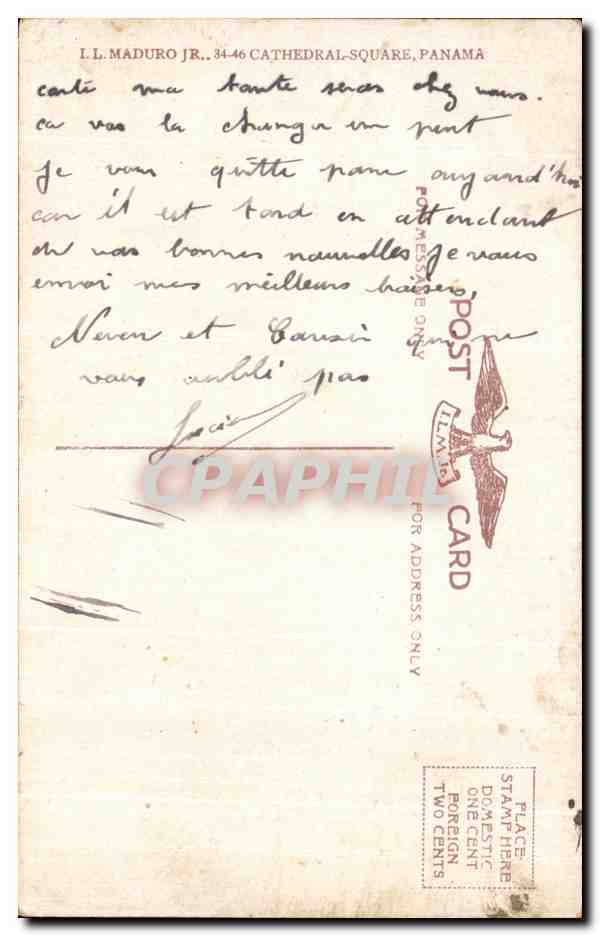 I. L. MADURO JR., 34-46 CATHEDRAL-SQUARE, PANAMA
carte ma tante seras chez vous.
ca vas la changer un peut
je vous quitte pour aujourd'hui
car il est tard en attendant
de vos bonnes nouvelles je vous
envoi mes meilleurs baisers,
Neveu et Cousin qui ne
vous oubli pas
Lucien
POST CARD
I.L.M. Jr.
FOR MESSAGE ONLY
FOR ADDRESS ONLY
PLACE
STAMP HERE
DOMESTIC
ONE CENT
FOREIGN
TWO CENTS
CPAPHIL.COM